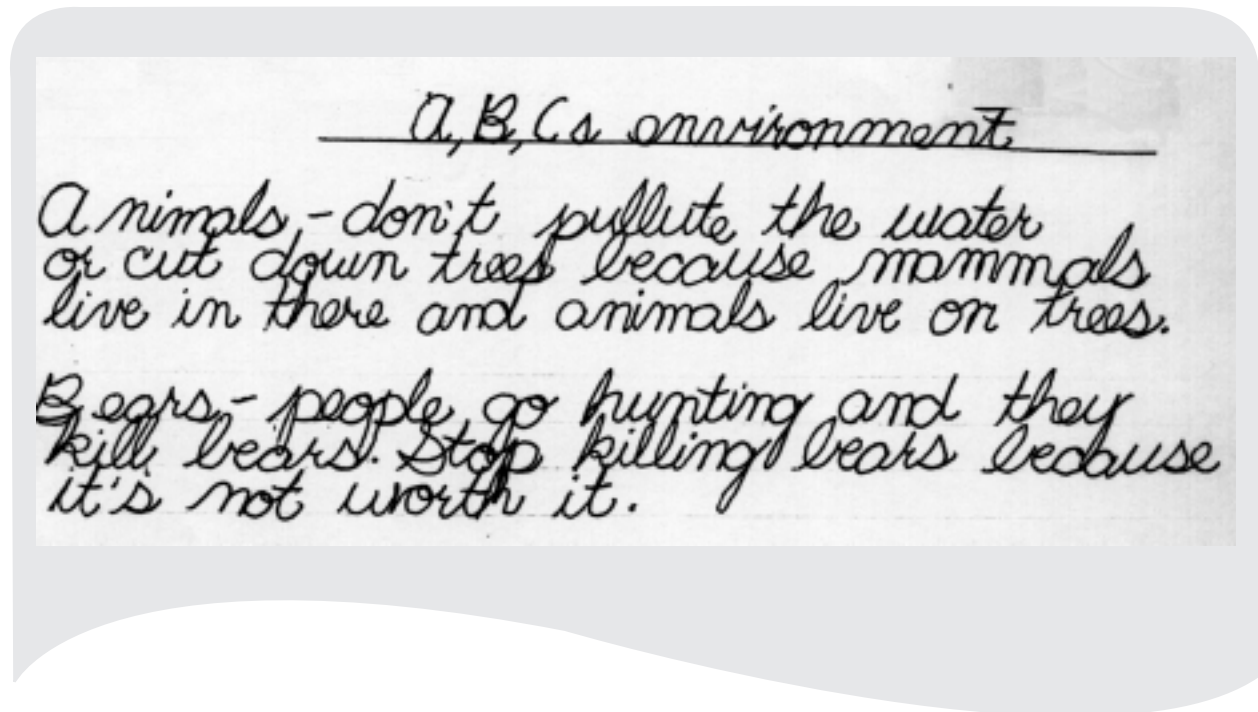 A, B, Cs environment
Animals - don't pullute the water
or cut down trees because mammals
live in there and animals live on trees.
Bears - people go hunting and they
kill bears. Stop killing bears because
it's not worth it.